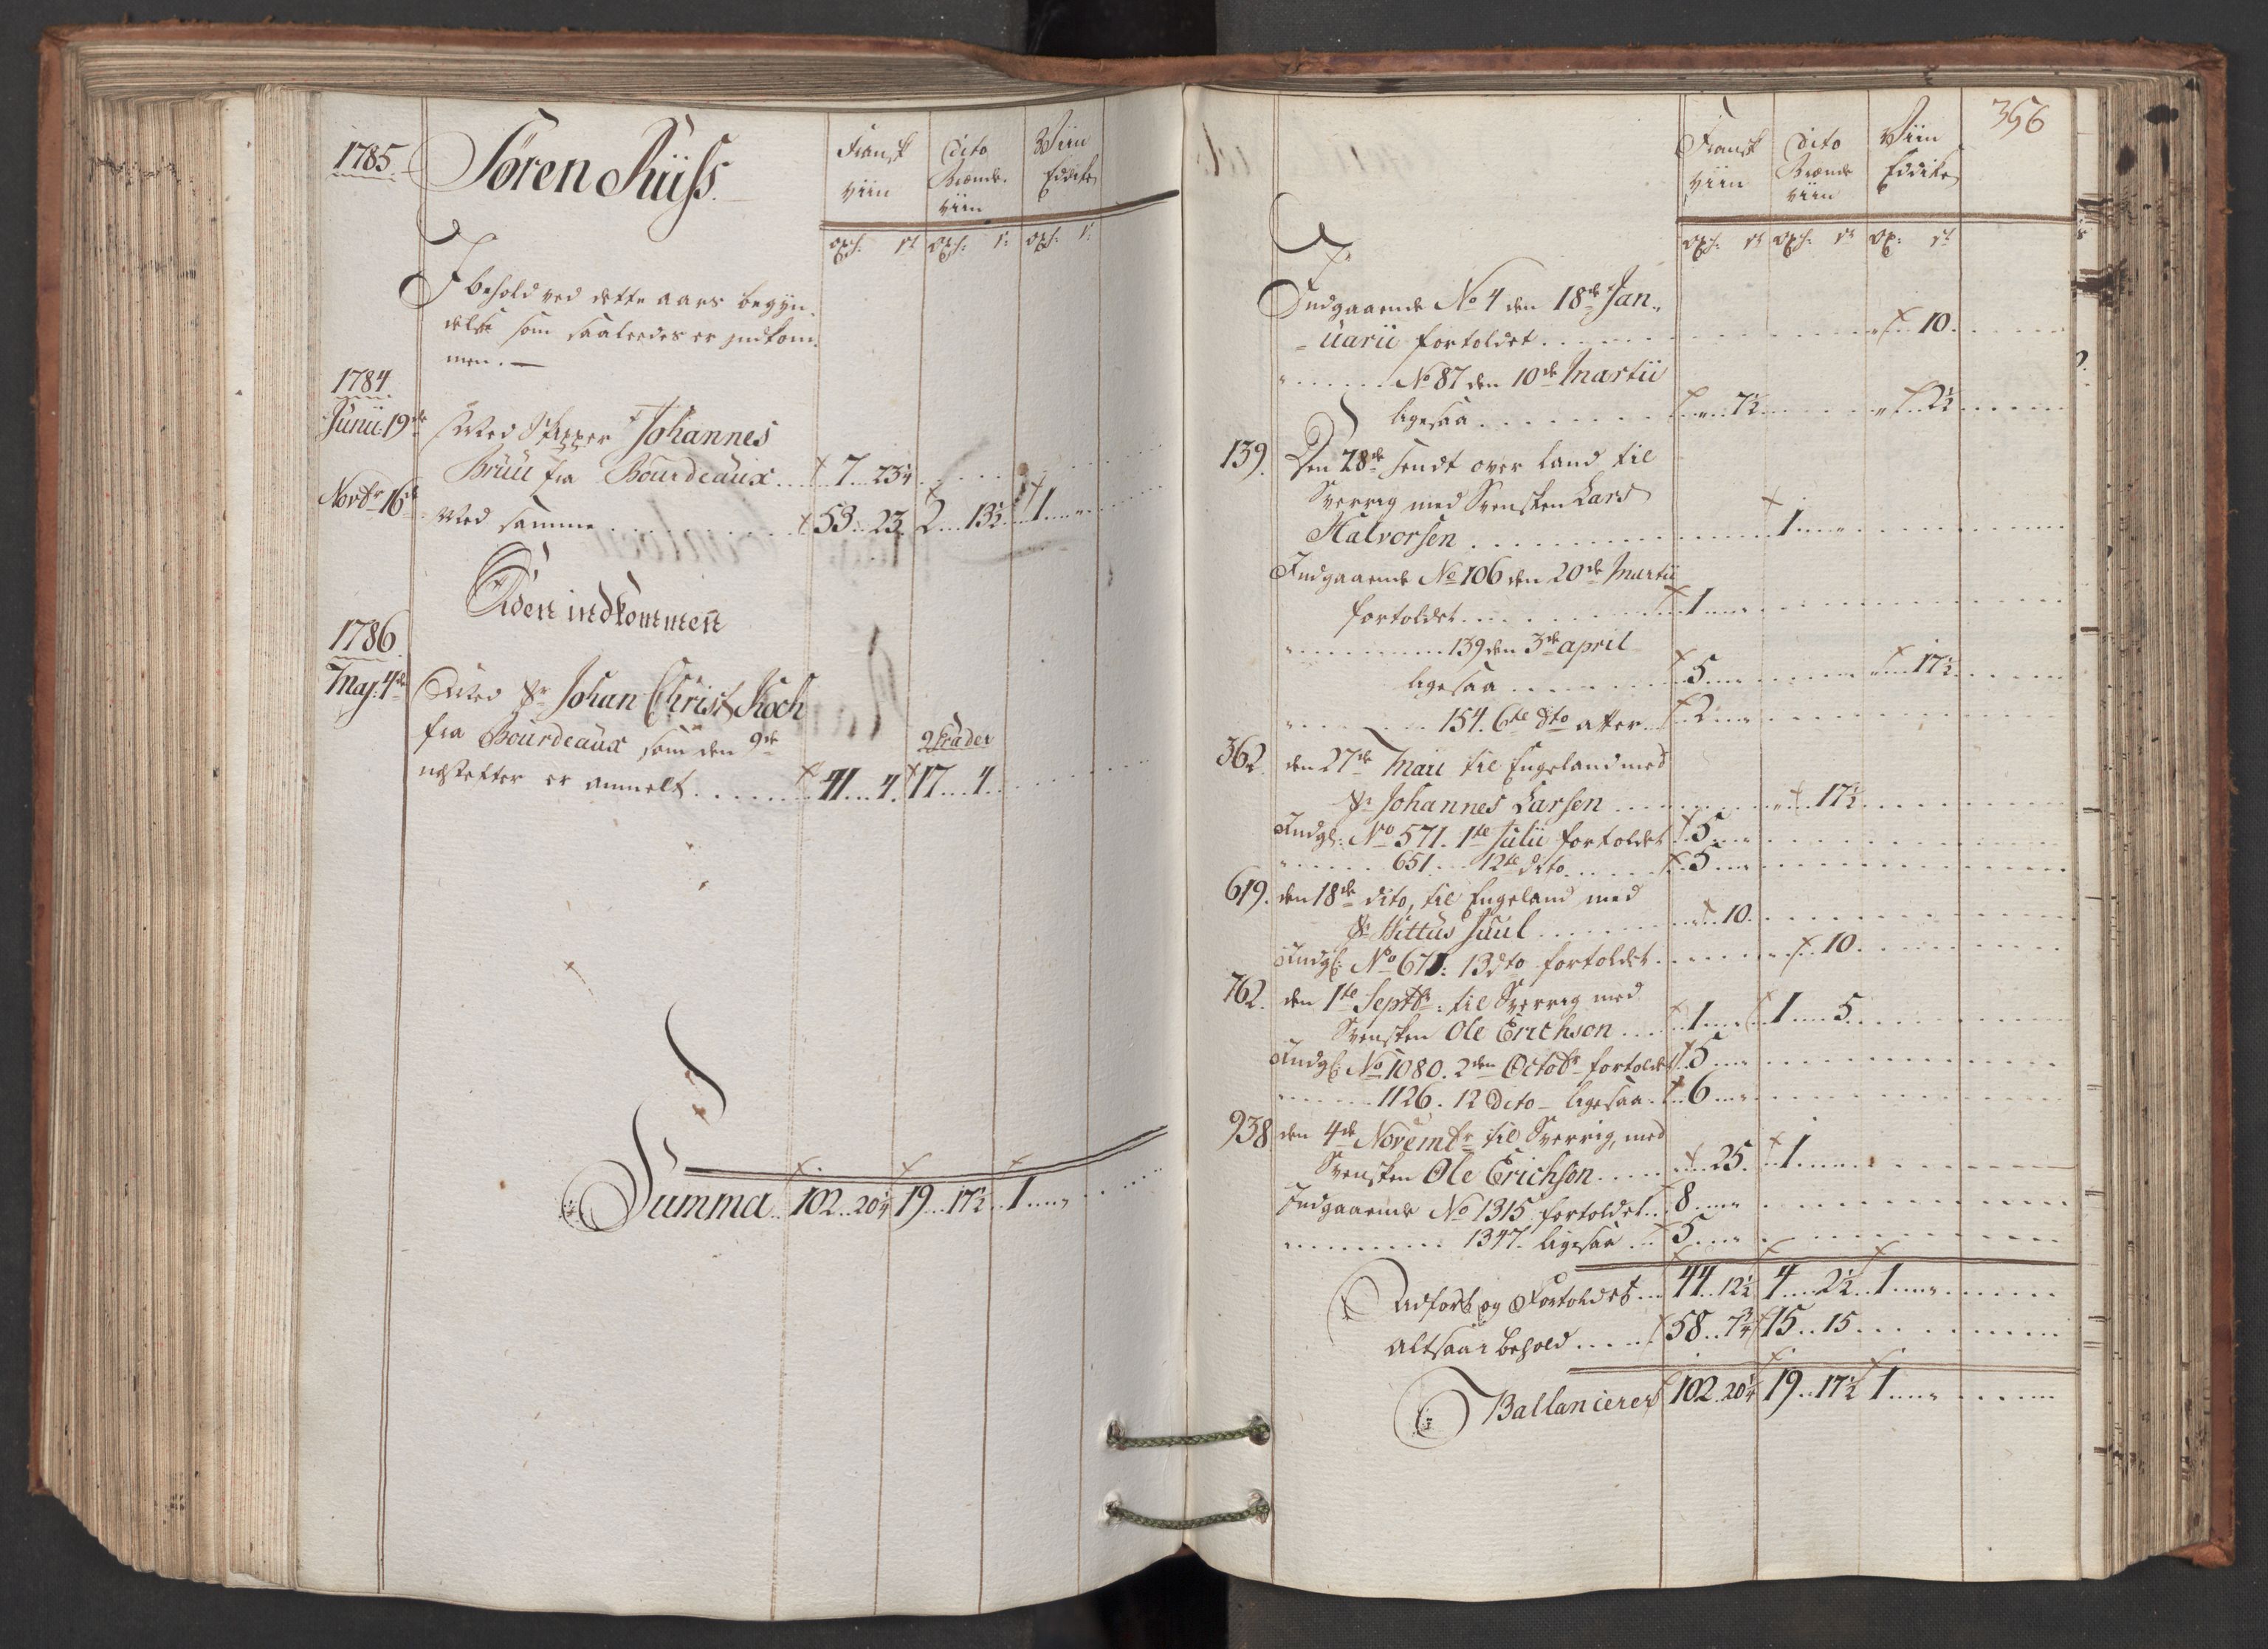 1785. Søren Ruus.
Fransk Viin
Dito Brænde Viin
Viin Eddike
Oxh: Oxh: Oxh:
I behold ved dette aars begyn-
delse som saaledes er indkom-
men.
1784
Junii 19de Med Skipper Johannes
Bruu fra Bourdeaux 7 23¼
Novbr 16de Med samme 53 23 2 13½ 1 "
Siden indkommen
1786
Maj. 4de Med Sr Johan Christ Koch
fra Bourdeaux som den 9de
næstefter er anmelt 41 4. 17 4
Summa 102 20¼ 19 17½ 1 "
356
Fransk Viin
Dito Brænde Viin
Viin Eddike
Oxh: Oxh: Ox:
Indgaaende No 4 den 18de Jan-
uarii fortoldet " 10.
" No 87 den 10de Martii
ligesaa " 7½ " 2½
139. Den 28de sendt over land til
Sverrig med Svensken Lars
Halvorsen 1 "
Indgaaende No 106 den 20de Martii
fortoldet 1 "
" 139 den 3de april
ligesaa 5 " " 17½
" 154. 6te dto atter 2 "
362. den 27de Maii til Engeland med
Sr Johannes Larsen " 17½
Indg: No 571. 1te Julii fortoldet 5 "
" 651 12te dito 5 "
619. den 18de dito, til Engeland med
Sr Wittus Juul " 10.
Indg: No 671: 13 dto fortoldet " 10.
762. den 1te Septbr: til Sverrig med
Svensken Ole Erichson 1 " 1 5
Indg: No 1080. 2den Octobr fortoldet 5 "
" 1126. 12 Dito ligesaa 6 "
938. den 4de Novembr til Sverrig, med
Svensken Ole Erichson " 25. 1 "
Indgaaende No 1315 fortoldet 8 "
" 1347. ligesaa 5 "
Udført og Fortoldet 44 12½ 4 2½ 1 "
altsaa i behold 58 7¾ 15 15
Ballancerer 102 20¼ 19 17½ 1 "